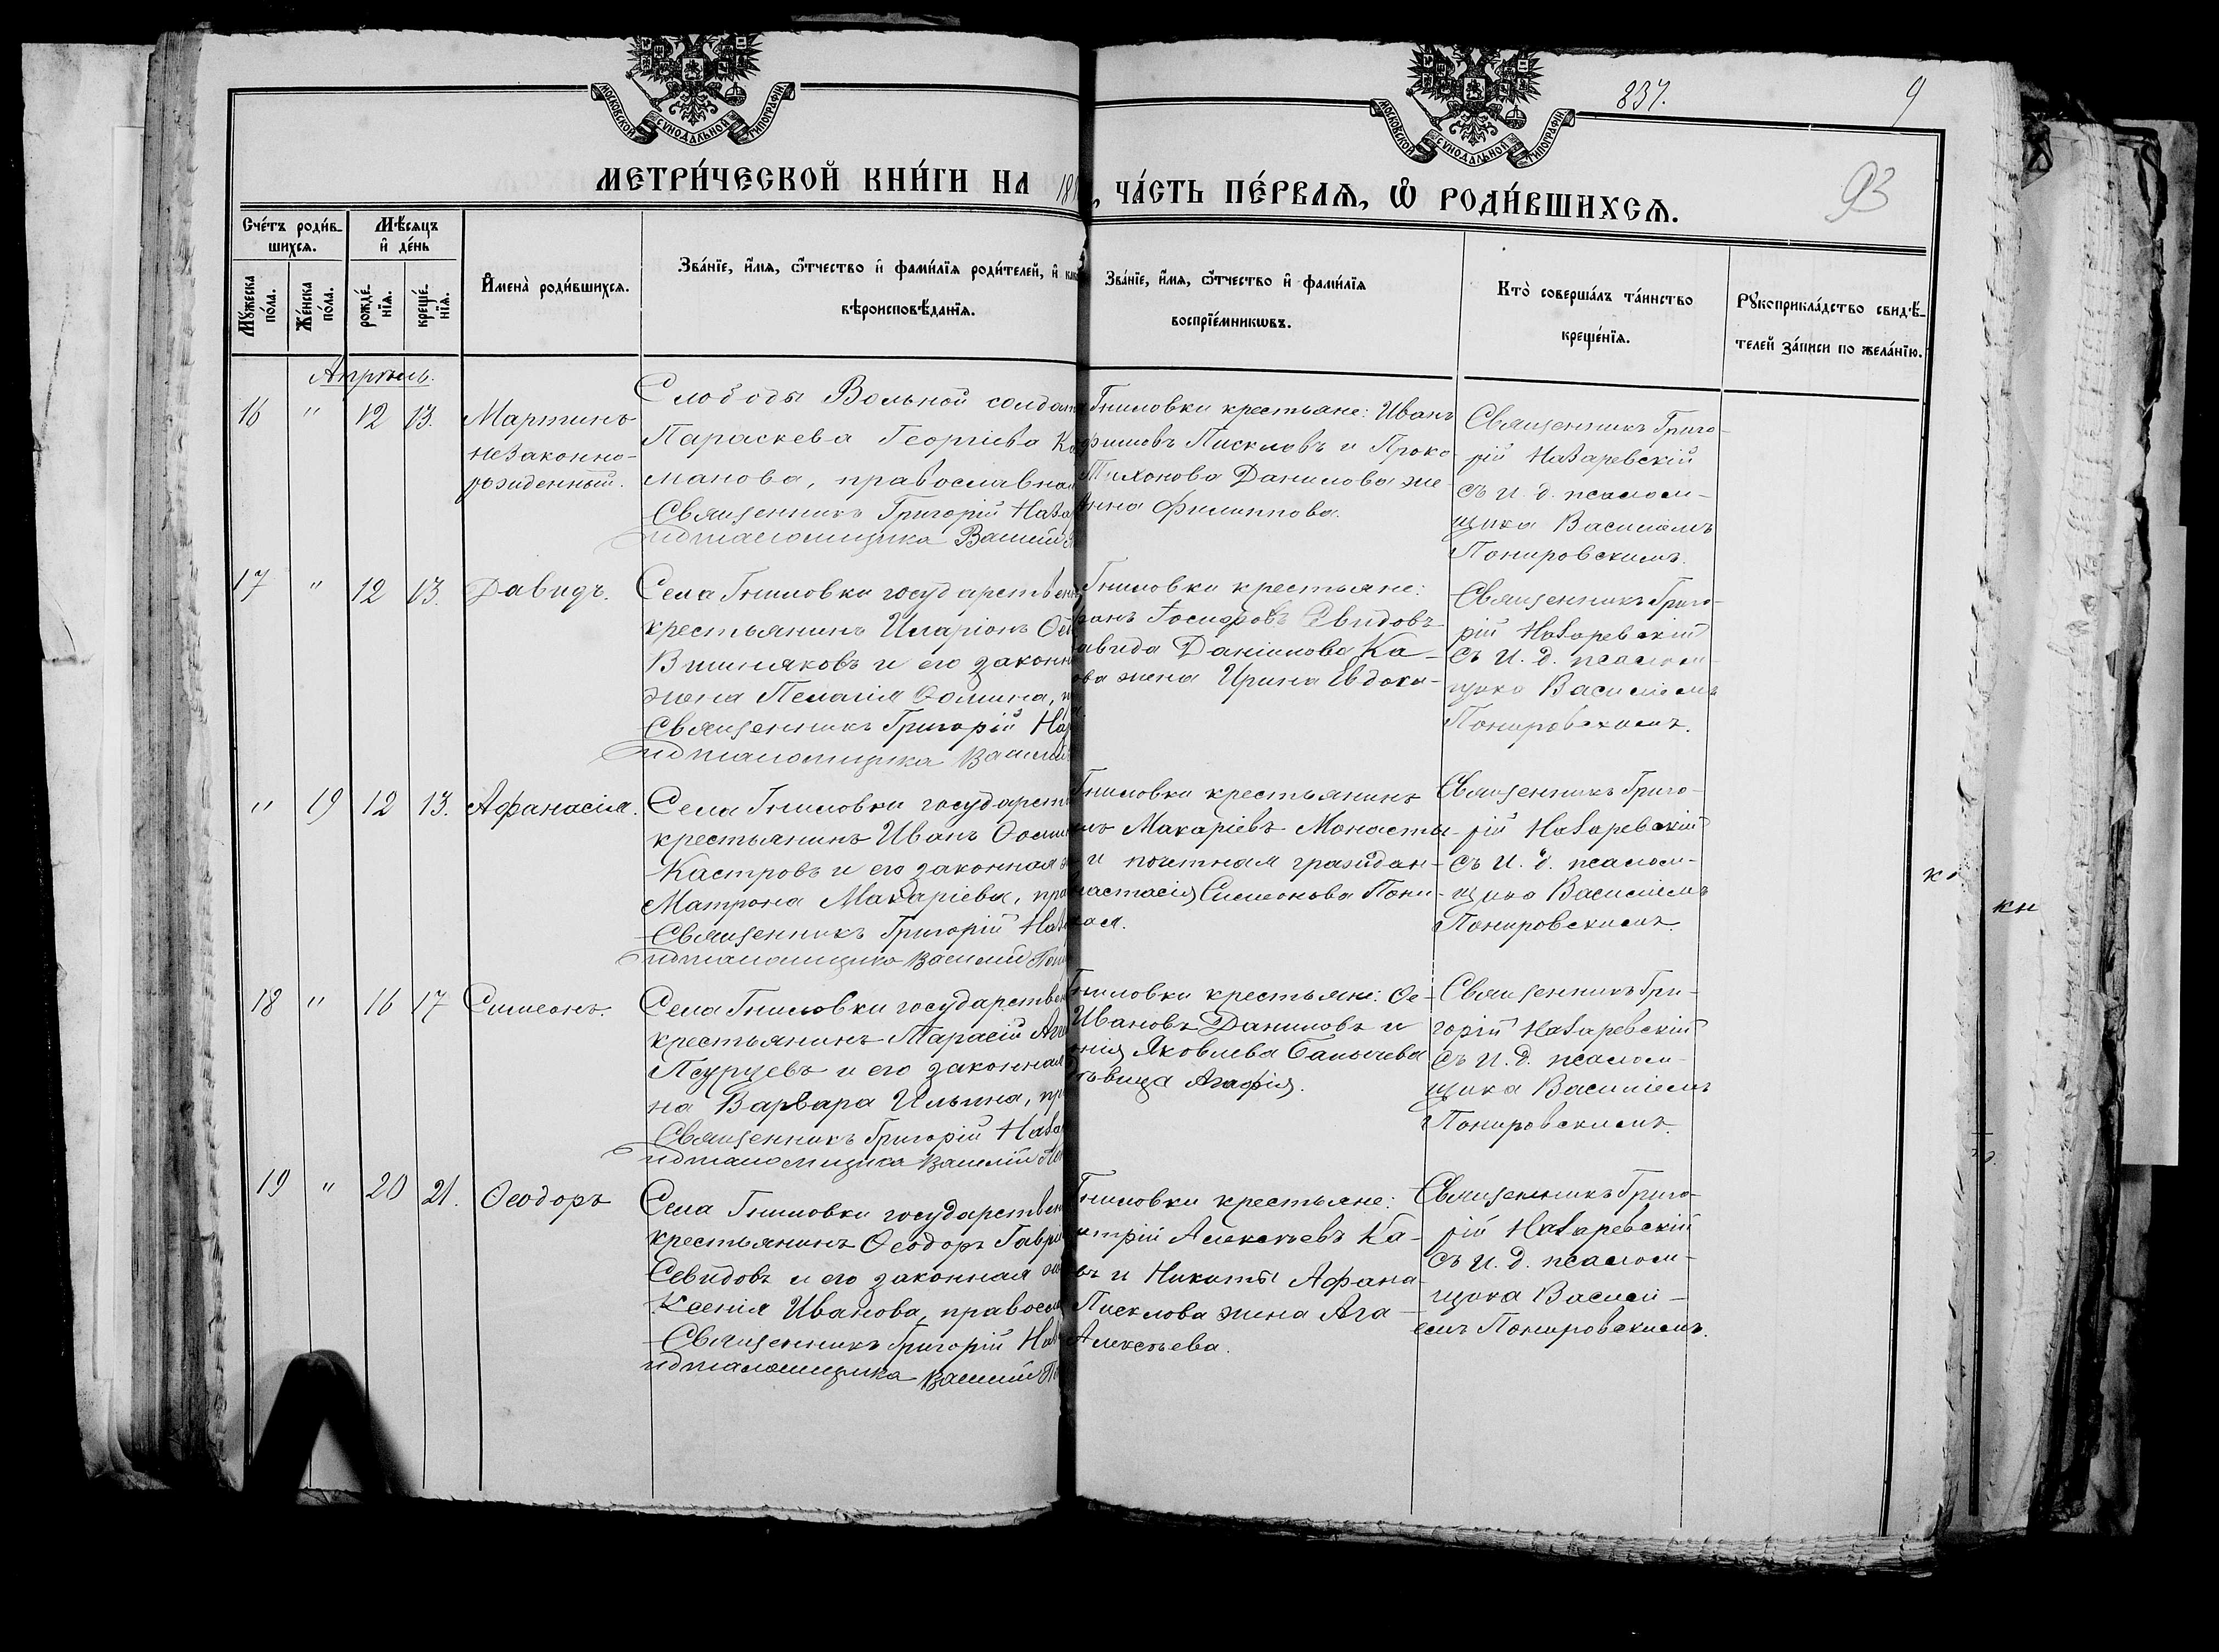 837.
9
93
МОСКОВСКОЙ СѴНОДАЛЬНОЙ ТИПОГРАФІИ
МОСКОВСКОЙ СѴНОДАЛЬНОЙ ТИПОГРАФІИ
МЕТРИ́ЧЕСКОЙ КНИ́ГИ НА 18
, ЧА́СТЬ ПЕ́РВАѦ, Ѡ РОДИ́ВШИХСѦ.
Сче́тъ роди́в-
шихсѧ.
Мѣ́сѧцъ
и де́нь
Мꙋжеска по́ла.
Же́нска по́ла.
рожде́нїѧ.
креще́нїѧ.
Имена̀ роди́вшихсѧ.
Зва́нїе, и́мѧ, ѻ́тчество и фами́лїѧ роди́телей, и
вѣроисповѣ́данїѧ.
Зва́нїе, и́мѧ, ѻ́тчество и фами́лїѧ
воспрїе́мникѡвъ.
Кто̀ соверша́лъ та́инство
креще́нїѧ.
Рꙋкоприкла́дство свидѣ́-
телей за́писи по жела́нїю.
Апрѣль.
16 " 12 13.
Мартинъ
незаконно-
рожденный.
Слободы Вольной солдат
Параскева Георгіева Ка
манова, православная
Священникъ Григорій Наза
ид псаломщика Василій
Гниловки крестьяне: Иванъ
фимовъ Писклов и Проко
Тихонова Данилова же
Анна Филиппова.
Священникъ Григо-
рій Назаревскій
съ и. д. псалом-
щика Василіемъ
Понировскимъ.
17 " 12 13.
Давидъ.
Села Гниловки государствен
крестьянинъ Иларіонъ
Вишняковъ и его законн
жена Пелагія Ѳомина,
Священникъ Григорій На
ид псаломщика Василій
Гниловки крестьяне:
Іосифовъ Севидовъ
авида Даніилова Ка-
ова жена Ирина Евдоки-
Священникъ Григо-
рій Назаревскій
съ и. д. псалом-
щика Василіемъ
Понировскимъ.
" 19 12 13.
Аѳанасія.
Села Гниловки государств
крестьянинъ Иванъ Ѳоми
Кастровъ и его законная
Матрона Макаріева, пра
Священникъ Григорій Наза
ид псаломщика Василій Пон
Гниловки крестьянинъ
Макаріевъ Монасты-
и почетная граждан-
настасія Симеонова Пони-
кая.
Священникъ Григо-
рій Назаревскій
съ и. д. псалом-
щика Василіемъ
Понировскимъ.
18 " 16 17
Симеонъ.
Села Гниловки государствен
крестьянинъ Тарасій
Псурцевъ и его законная
на Варвара Ильина, пр
Священникъ Григорій Наза
ид псаломщика Василій По
Гниловки крестьяне: Ѳе-
Ивановъ Даниловъ и
Яковлева Балычева
дѣвица Агафія.
Священникъ Гри-
горій Назаревскій
съ и. д. псалом-
щика Василіемъ
Понировскимъ.
19 " 20 21.
Ѳеодоръ
Села Гниловки государствен
крестьянинъ Ѳеодоръ Гаврі
Севидовъ и его законная
Ксенія Иванова, правосл
Священникъ Григорій Наз
ид псаломщика Василій По
Гниловки крестьяне:
итрій Алексѣевъ Ка-
въ и Никиты Афана-
Писклова жена Ага-
Алексѣева.
Священникъ Григо-
рій Назаревскій
съ и. д. псалом-
щика Васили-
емъ Понировскимъ.
кн